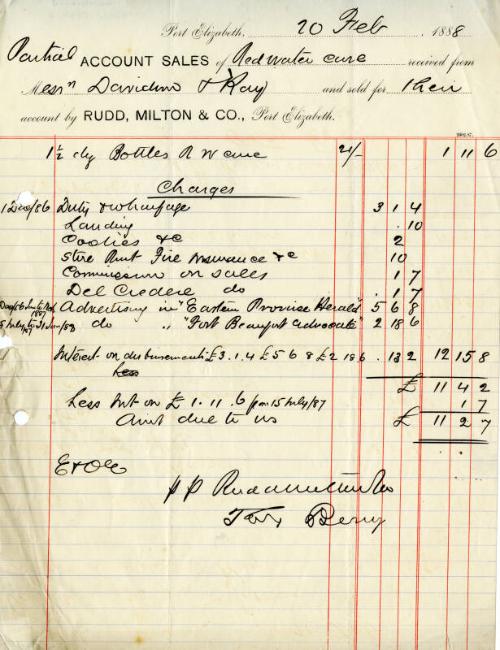 Port Elizabeth, 20 Feb 1888
Partial ACCOUNT SALES of Redwater cure received from
Messrs Davidson & Kay and sold for their
account by RUDD, MILTON & CO., Port Elizabeth.
1½ dz Bottles R W cure 21/- 1 11 6
Charges
1 Dec/86 Duty & wharfage 3 1 4
Landing . 10
Coolies &c 2
Store Rent Fire Insurance &c 10
Commission on sales . 1 7
Del Credere do . 1 7
Advertising in "Eastern Province Herald" 5 6 8
do " "Fort Beaufort Advocate" 2 18 6
Interest on disbursements £3.1.4 £5 6 8 £2 18 6 . 13 2 12 15 8
Less
£ 11 4 2
Less Int on £1.11.6 from 15 July/87 1 7
Amt due to us £ 11 2 7
E & O E
pp Rudd Milton & Co
Berry